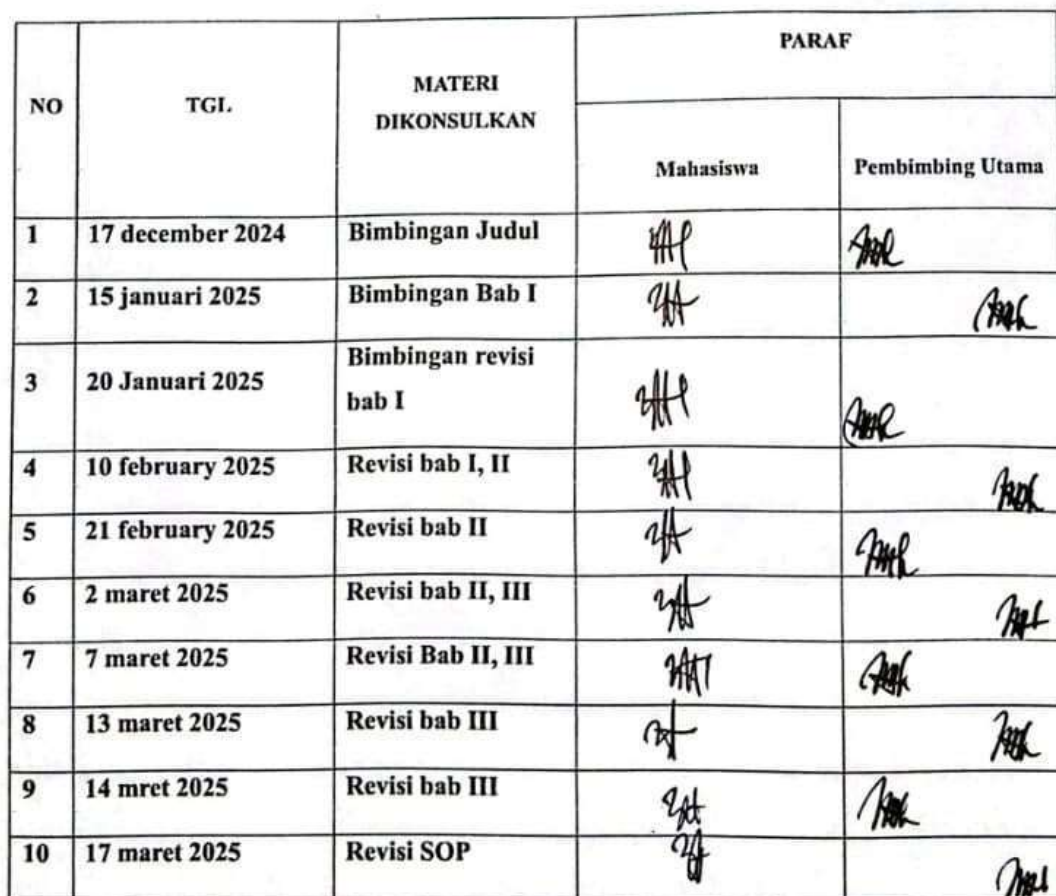 NO TGL. MATERI DIKONSULKAN PARAF
Mahasiswa Pembimbing Utama
1 17 december 2024 Bimbingan Judul
2 15 januari 2025 Bimbingan Bab I
3 20 Januari 2025 Bimbingan revisi bab I
4 10 february 2025 Revisi bab I, II
5 21 february 2025 Revisi bab II
6 2 maret 2025 Revisi bab II, III
7 7 maret 2025 Revisi Bab II, III
8 13 maret 2025 Revisi bab III
9 14 mret 2025 Revisi bab III
10 17 maret 2025 Revisi SOP